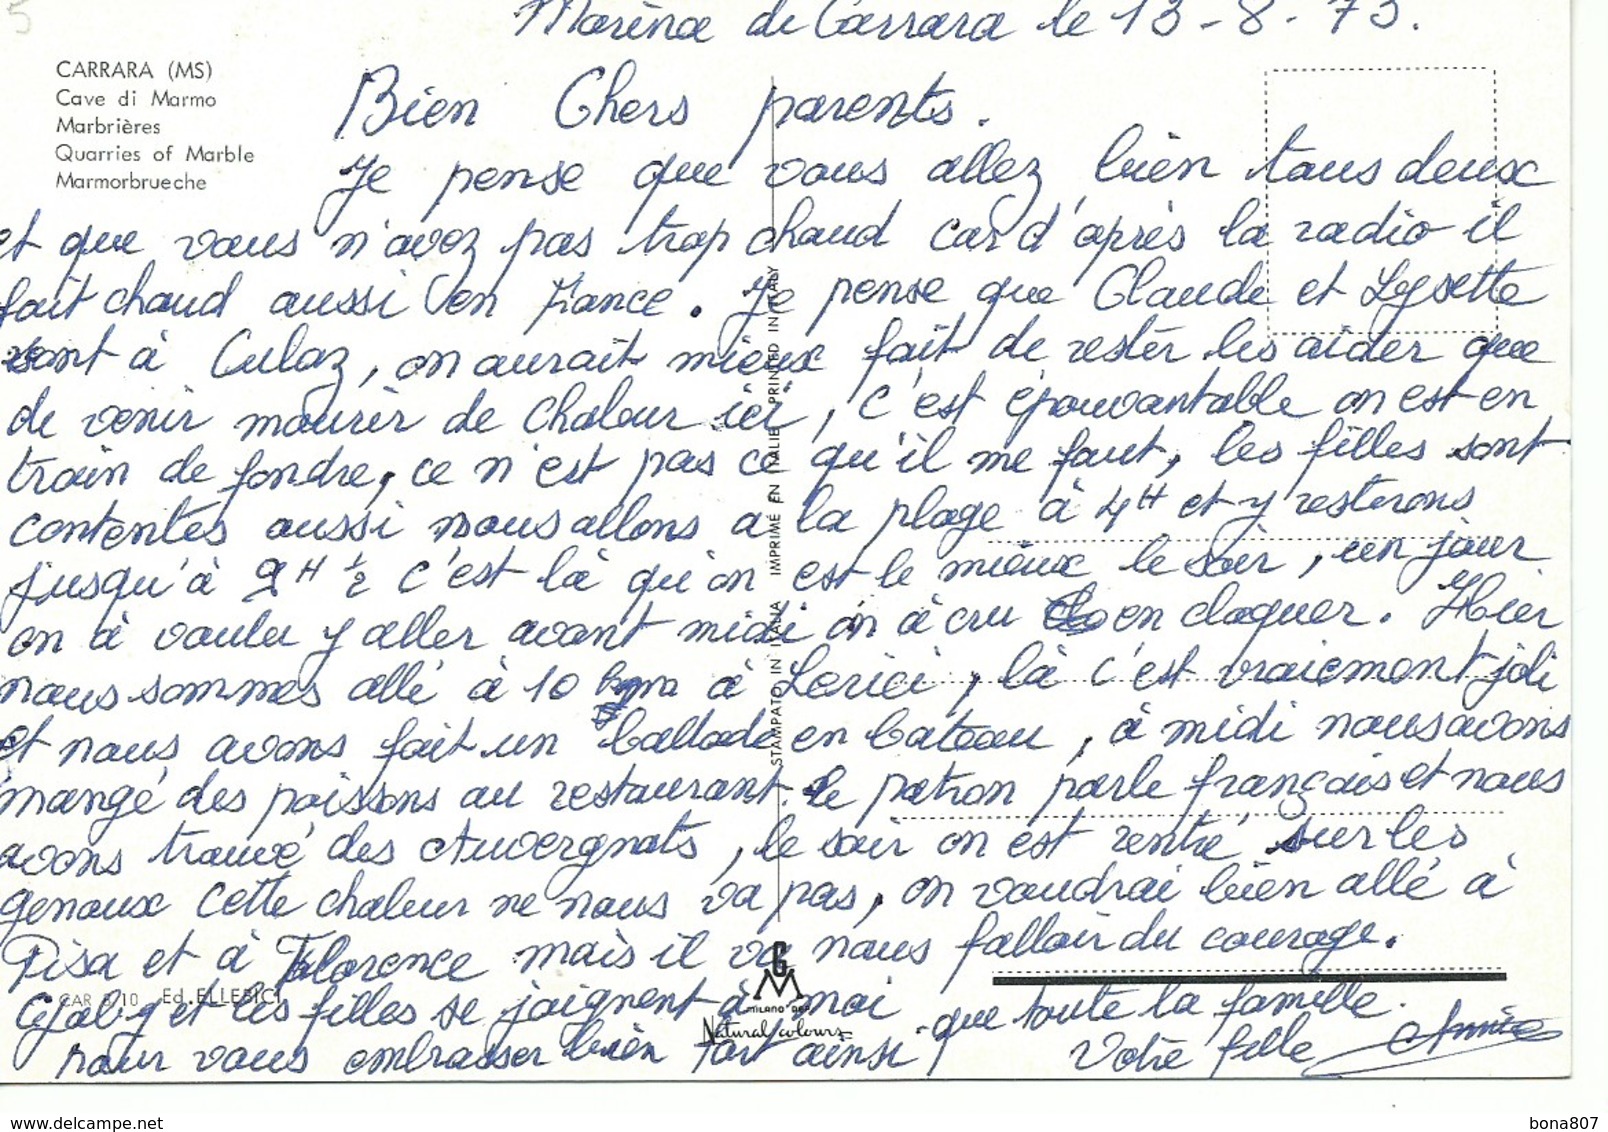 Marina di Carrara le 13-8-73.
CARRARA (MS)
Cave di Marmo
Marbrières
Quarries of Marble
Marmorbrueche
Bien Chers parents.
Je pense que vous allez bien tous deux
et que vous n'avez pas trop chaud car d'après la radio il
fait chaud aussi en France. Je pense que Claude et Lysette
sont à Culaz, on aurait mieux fait de rester les aider que
de venir mourir de chaleur ici, c'est épouvantable on est en
train de fondre, ce n'est pas ce qu'il me faut, les filles sont
contentes aussi nous allons a la plage à 4H et y resterons
jusqu'à H 1/2 c'est là qu'on est le mieux le soir, un jour
on à voulu y aller avant midi on à cru en claquer. Hier
nous sommes allé à 10 kms à Lerici, là c'est vraiement joli
et nous avons fait un ballade en bateau, à midi nous avons
mangé des poissons au restaurant. le patron parle français et nous
avons trouvé des Auvergnats, le soir on est rentré sur les
genoux cette chaleur ne nous va pas, on voudrai bien allé à
Pisa et à Florence mais il va nous falloir du courage.
Gaby et les filles se joignent à moi
pour vous embrasser bien fort ainsi que toute la famille.
Votre fille Annie
STAMPATO IN ITALIA IMPRIME EN ITALIE PRINTED IN ITALY
CAR 8/10 Ed. ELLEBICI
G
M
MILANO
Natural colours
bona807